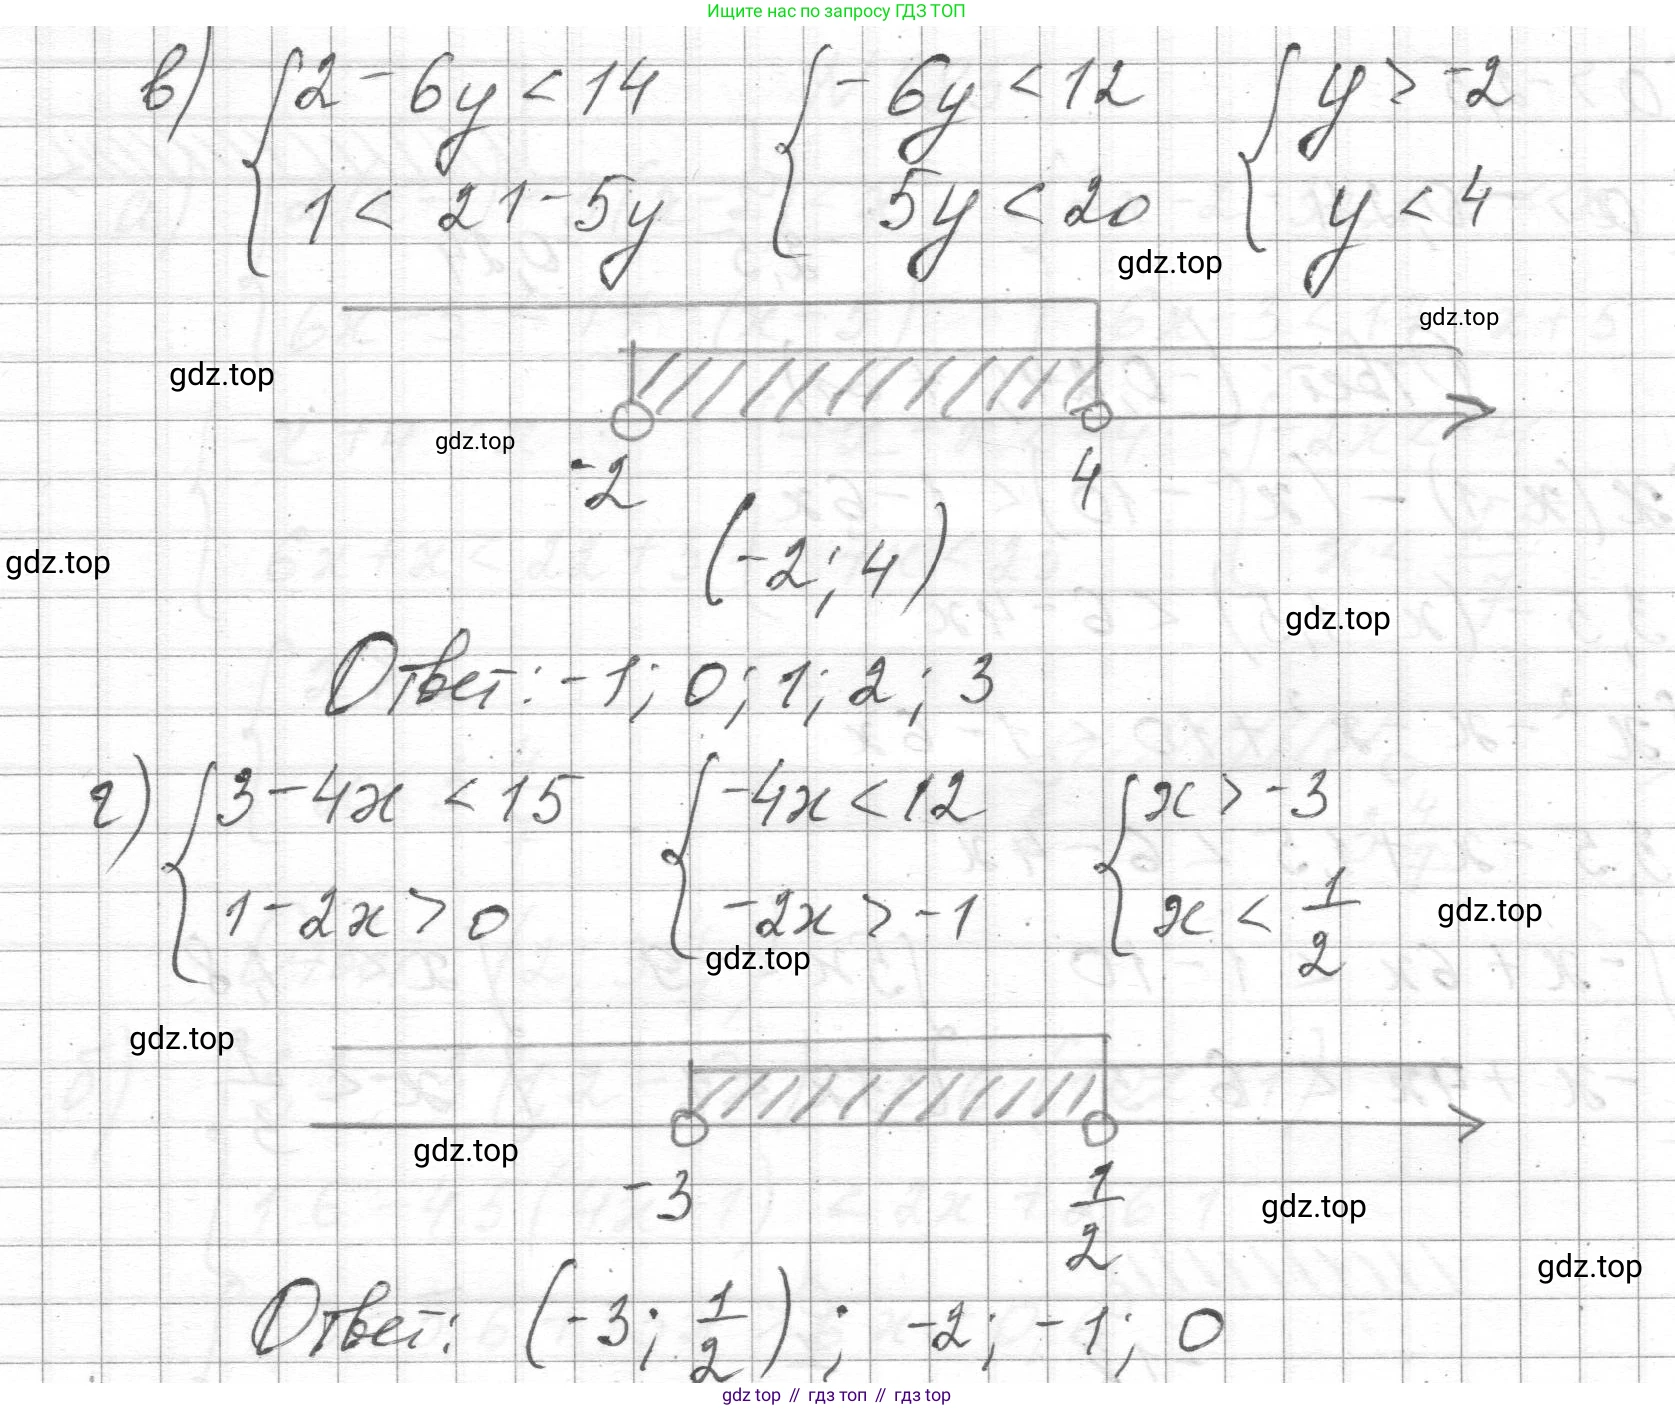 Ищите нас по запросу ГДЗ ТОП
в) { 2 - 6y < 14 { - 6y < 12 { y > -2
1 < 21 - 5y 5y < 20 y < 4
gdz.top
gdz.top
gdz.top
gdz.top
-2 4
gdz.top
(-2; 4)
gdz.top
Ответ: -1; 0; 1; 2; 3
г) { 3 - 4x < 15 { -4x < 12 { x > -3
1 - 2x > 0 -2x > -1 x < 1/2
gdz.top
gdz.top
gdz.top
gdz.top
-3 1/2
gdz.top
gdz.top
Ответ: (-3; 1/2); -2; -1; 0
gdz top // гдз топ // гдз top